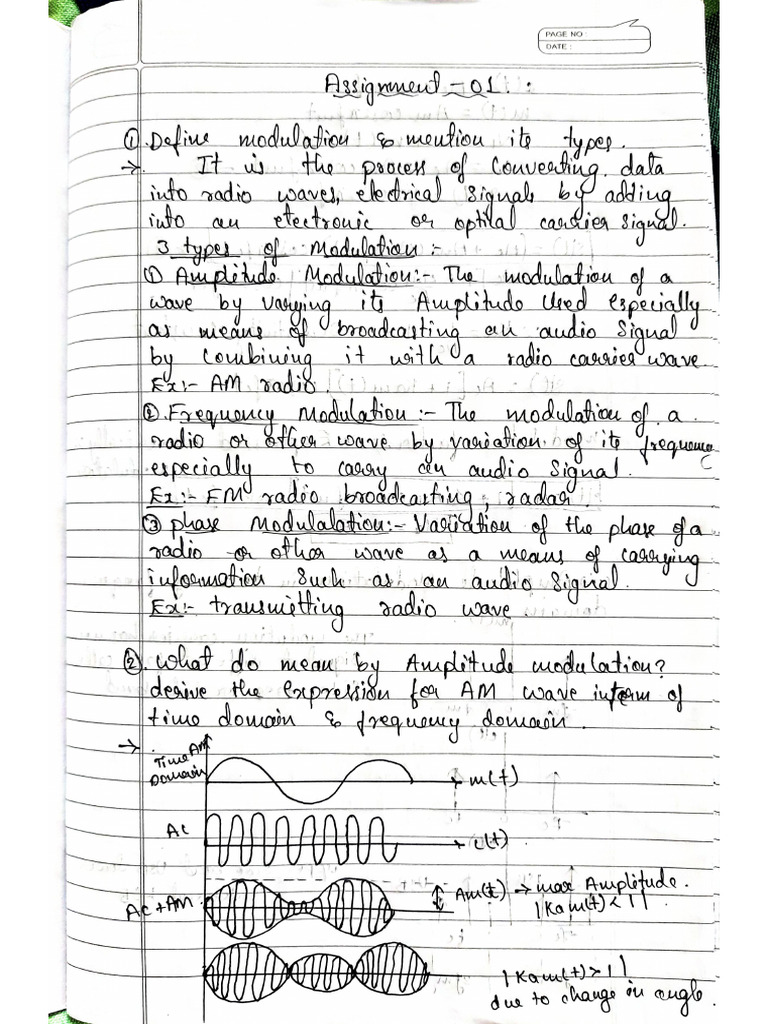 PAGE NO :
DATE :
Assignment - 01 :
① Define modulation & mention its types.
→ It is the process of converting data
into radio waves, electrical signals by adding
into an electronic or optical carrier signal.
3 types of Modulation :-
① Amplitude Modulation:- The modulation of a
wave by varying its Amplitude Used especially
as means of broadcasting an audio Signal
by combining it with a radio carrier wave.
Ex:- AM radio.
② Frequency Modulation :- The modulation of a
radio or other wave by variation of its frequency
especially to carry an audio Signal.
Ex:- FM radio broadcasting, radar.
③ phase Modulalation:- Variation of the phase of a
radio or other wave as a means of carrying
information such as an audio signal.
Ex:- transmitting radio wave.
②. What do mean by Amplitude modulation?
derive the expression for AM wave interm of
time domain & frequency domain.
→
Time AM
Domain
m(t)
Ac
c(t)
Ac + AM
Am(t) → max Amplitude.
|Kam(t) < 1|
|Kam(t) > 1|
due to change in angle.